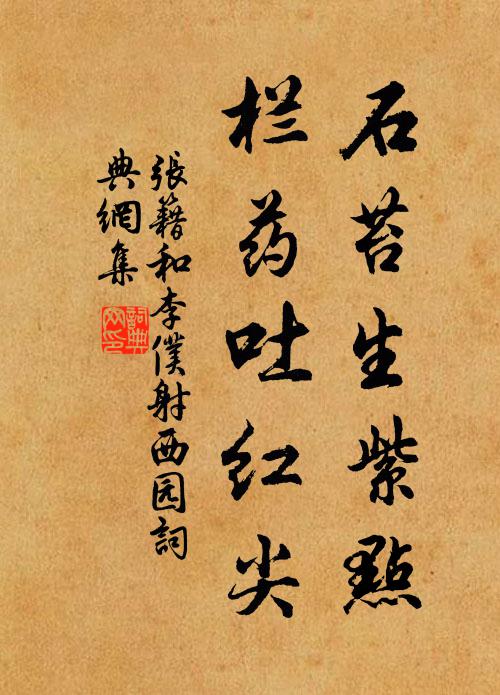 石苔生紫點
栏药吐红尖
張籍和李僕射西园詞
典網集
詞典
网印